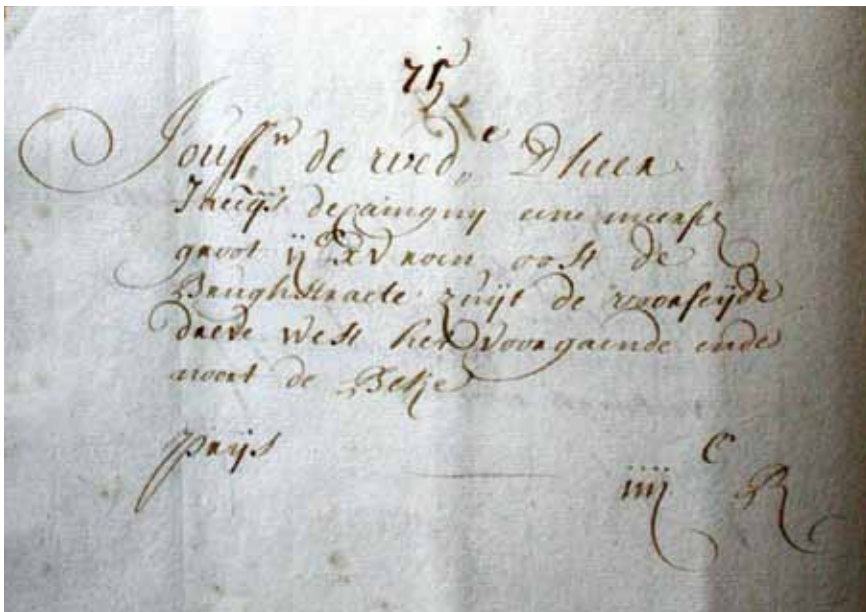 75
Jouff„w de wed„e Dheer
Jacq̃s decamgny eene meersch
groot ij c xv roen, oost de
Brughstraete zuijt de voorseijde
dreve west het voorgaende ende
noort de Beke
prijs iiij c R